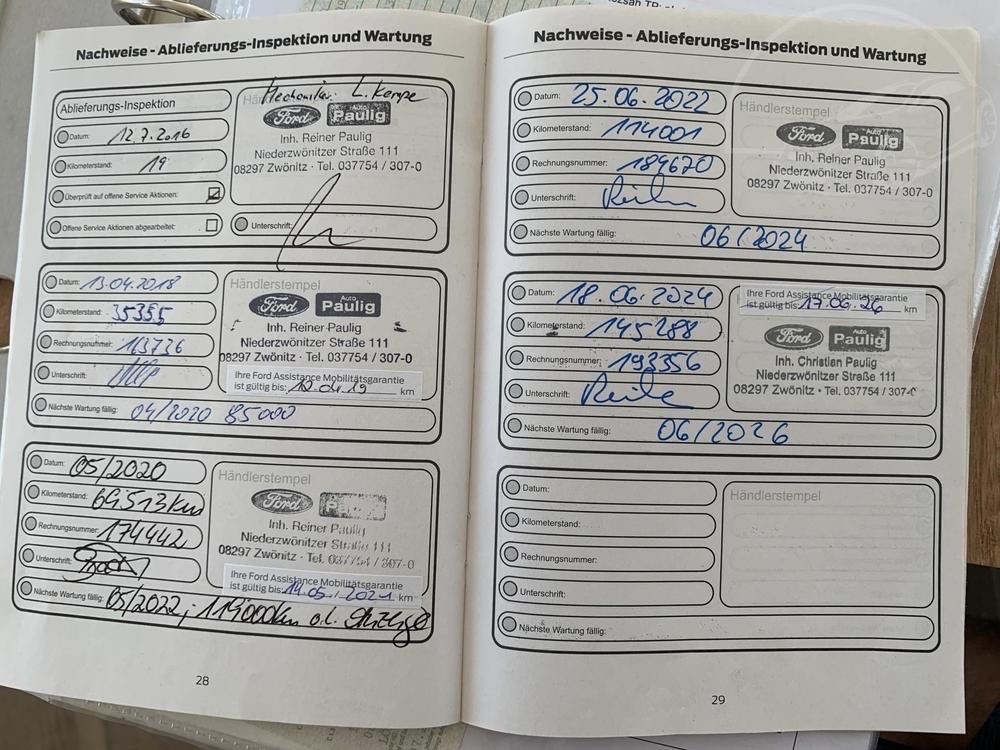 Nachweise - Ablieferungs-Inspektion und Wartung
Ablieferungs-Inspektion
Datum: 12.7.2016
Kilometerstand: 19
Überprüft auf offene Service Aktionen:
Offene Service Aktionen abgearbeitet:
Mechaniker: L. Kempe
Ford Auto Paulig
Inh. Reiner Paulig
Niederzwönitzer Straße 111
08297 Zwönitz · Tel. 037754 / 307-0
Unterschrift:
Datum: 13.04.2018
Kilometerstand: 35355
Rechnungsnummer: 163736
Unterschrift:
Nächste Wartung fällig: 04/2020 85000
Händlerstempel
Ford Auto Paulig
Inh. Reiner Paulig
Niederzwönitzer Straße 111
08297 Zwönitz · Tel. 037754 / 307-0
Ihre Ford Assistance Mobilitätsgarantie
ist gültig bis: 12.04.19 km
Datum: 05/2020
Kilometerstand: 69513km
Rechnungsnummer: 174442
Unterschrift:
Nächste Wartung fällig: 05/2022; 119000km o.l. Anzeige
Händlerstempel
Ford
Inh. Reiner Paulig
Niederzwönitzer Straße 111
08297 Zwönitz · Tel. 037754 / 307-0
Ihre Ford Assistance Mobilitätsgarantie
ist gültig bis: 14.05.2021 km
28
Nachweise - Ablieferungs-Inspektion und Wartung
Datum: 25.06.2022
Kilometerstand: 114001
Rechnungsnummer: 184670
Unterschrift:
Nächste Wartung fällig: 06/2024
Händlerstempel
Ford Auto Paulig
Inh. Reiner Paulig
Niederzwönitzer Straße 111
08297 Zwönitz · Tel. 037754 / 307-0
Datum: 18.06.2024
Kilometerstand: 145288
Rechnungsnummer: 193356
Unterschrift:
Nächste Wartung fällig: 06/2026
Ihre Ford Assistance Mobilitätsgarantie
ist gültig bis: 17.06.26 km
Ford Auto Paulig
Inh. Christian Paulig
Niederzwönitzer Straße 111
08297 Zwönitz · Tel. 037754 / 307-0
Datum:
Kilometerstand:
Rechnungsnummer:
Unterschrift:
Nächste Wartung fällig:
Händlerstempel
29